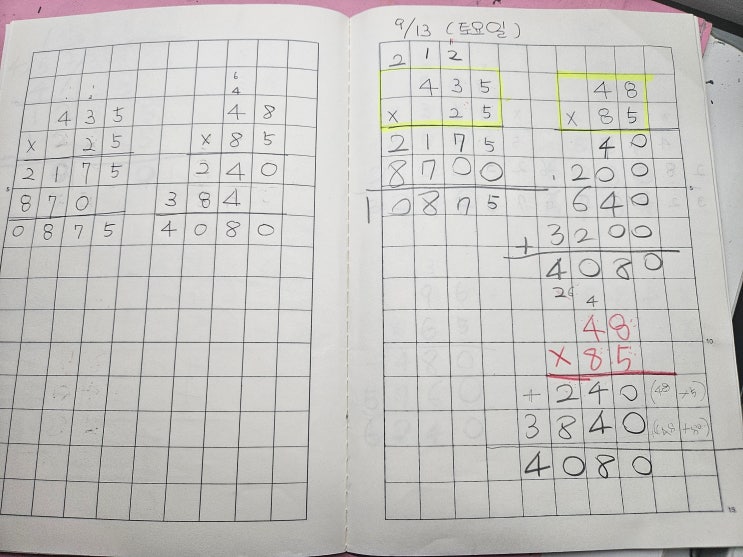 6
4
4 3 5
x 2 5
2 1 7 5
8 7 0
0 8 7 5
4 8
x 8 5
2 4 0
3 8 4
4 0 8 0
9/13 (토요일)
2 1 2
4 3 5
x 2 5
2 1 7 5
8 7 0 0
1 0 8 7 5
4 8
x 8 5
4 0
2 0 0
6 4 0
+ 3 2 0 0
4 0 8 0
4
4 8
x 8 5
+ 2 4 0
3 8 4 0
4 0 8 0
5
10
15